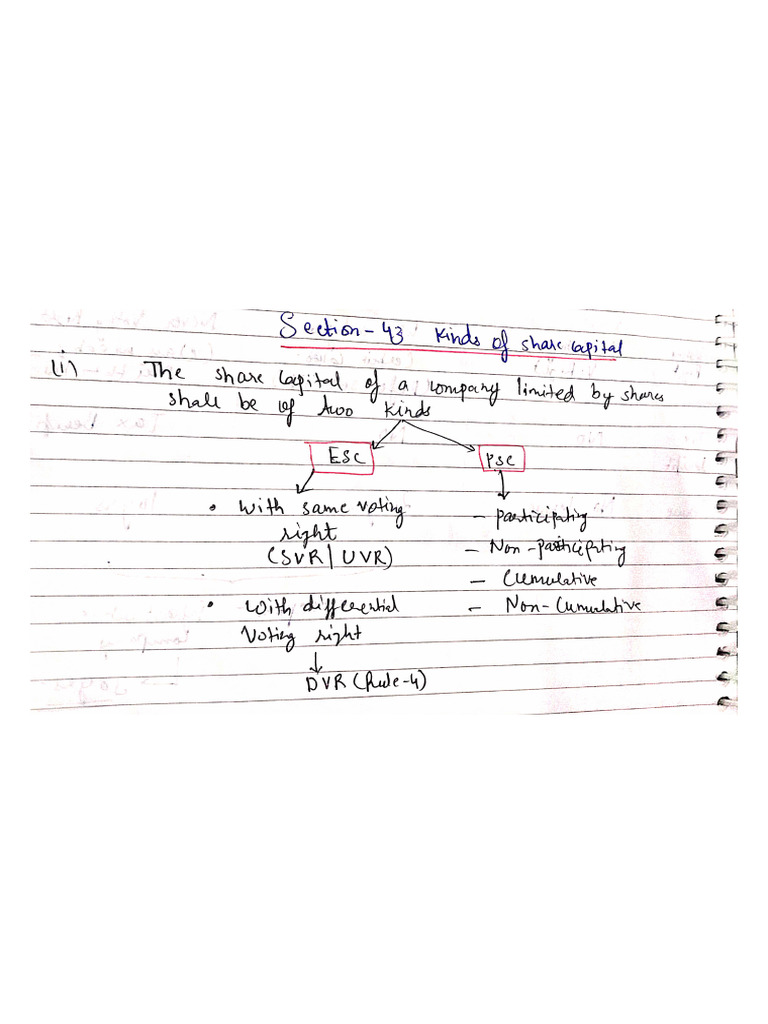 Section-43 Kinds of share capital
(i) The share capital of a company limited by shares
shall be of two kinds
ESC PSC
• With same voting
right
(SVR/UVR)
• With differential
Voting right
DVR (Rule-4)
- participating
- Non-participating
- Cumulative
- Non-Cumulative